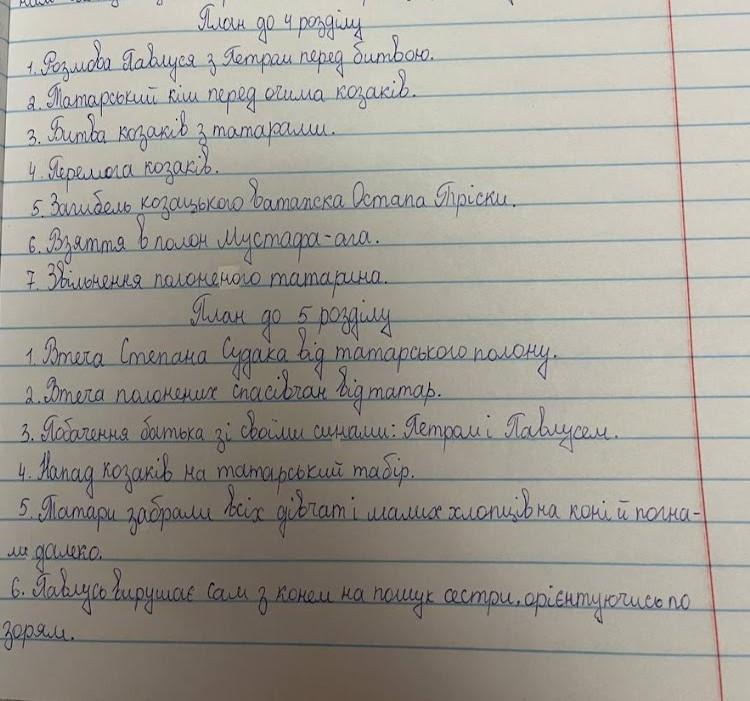 План до 4 розділу
1. Розмова Павлуся з Петром перед битвою.
2. Татарський кіш перед очима козаків.
3. Битва козаків з татарами.
4. Перемога козаків.
5. Загибель козацького ватажка Остапа Тріски.
6. Взяття в полон Мустафа-ага.
7. Звільнення полоненого татарина.
План до 5 розділу
1. Втеча Степана Судака від татарського полону.
2. Втеча полонених спасівчан від татар.
3. Побачення батька зі своїми синами: Петром і Павлусем.
4. Напад козаків на татарський табір.
5. Татари забрали всіх дівчат і малих хлопців на коні й погна-
ли далеко.
6. Павлусь вирушає сам з конем на пошук сестри, орієнтуючись по
зорям.